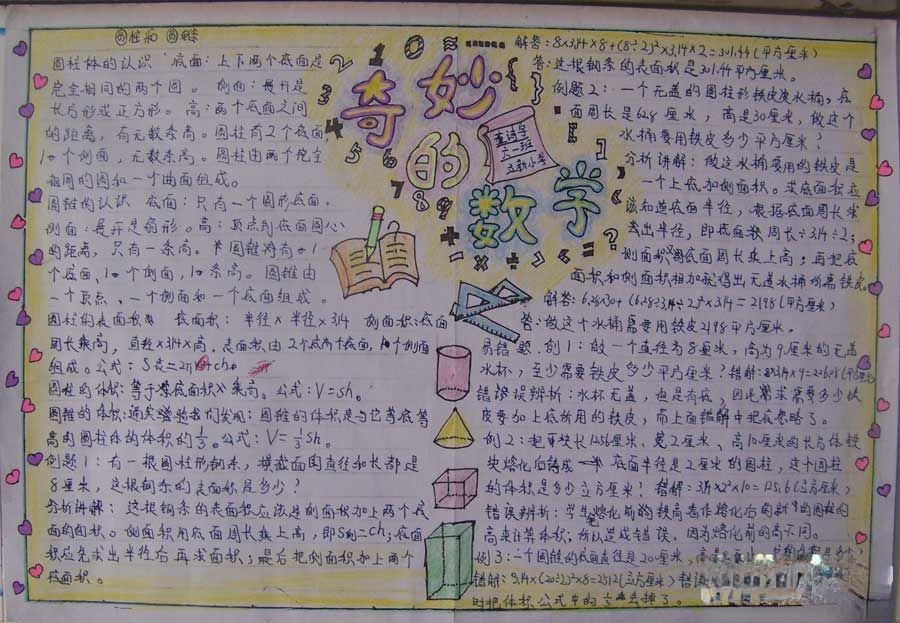 圆柱和圆锥
圆柱体的认识 底面:上下两个底面是
完全相同的两个圆。 侧面:展开是
长方形或正方形。高:两个底面之间
的距离,有无数条高。圆柱有2个底面
1个侧面,无数条高。圆柱由两个完全
相同的圆和一个曲面组成。
圆锥的认识 底面:只有一个圆形底面,
侧面:展开是扇形。高:顶点到底面圆心
的距离,只有一条高。圆锥有1
个底面,1个侧面,1条高。圆锥由
一个顶点、一个侧面和一个底面组成。
圆柱的表面积 底面积:半径×半径×3.14 侧面积:底面
周长乘高,直径×3.14×高。表面积由2个底面,1个侧面
组成。公式:S表=2π
圆柱的体积:等于底面积×乘高。公式:V=sh。
圆锥的体积:通实验我们发现:圆锥的体积是与它等底等
高的圆柱体的体积的1/3。公式:V=1/3sh。
例题1:有一根圆柱形钢条,横截面的直径和长都是
8厘米,这根钢条的表面积是多少?
分析讲解:这根钢条的表面积应该是侧面积加上两个底
面的面积。侧面积用底面周长乘上高,即S侧=Ch;底面
积应先求出半径后再求面积;最后把侧面积加上两个
底面积。
奇妙
的
数学
孟诗宇
六一班
立新小学
1 0 2 3 4 5 6 7 8 9
解答:8×3.14×8+(8÷2)²×3.14×2=301.44(平方厘米)
答:这根钢条的表面积是301.44平方厘米。
例题2:一个无盖的圆柱形铁皮水桶,底
面周长是628厘米,高是30厘米,做这个
水桶要用铁皮多少平方厘米?
分析讲解:做这水桶要用的铁皮是
一个上底加侧面积。求底面积应
该知道底面半径,根据底面周长求
出半径,即底面周长÷3.14÷2;
侧面积用底面周长乘上高;再把底
面积和侧面积相加就得出无盖水桶所需铁皮。
解答:6.28×30+(6.28÷3.14÷2)²×3.14=2198(平方厘米)
答:做这个水桶需要用铁皮2198平方厘米。
易错题.例1:做一个直径为8厘米,高为9厘米的无盖
水杯,至少需要铁皮多少平方厘米?错解:8×3.14×9=226.08(平方厘米)
错误辨析:水杯无盖,但是有底,因此需求需要多少铁
皮要加上底所用的铁皮,而上面错解中把底忽略了。
例2:把一块长12.56厘米、宽2厘米、高10厘米的长方体铁
块熔化后铸成底面半径是2厘米的圆柱,这个圆柱
的体积是多少立方厘米?错解:3.14×2²×10=125.6(立方厘米)
错误辨析:学生把熔化前的铁高当作熔化后的新的圆柱的
高来计算体积;所以造成错误,因为熔化前的高不同。
例3:一个圆锥的底面直径是20厘米,高是
错解:3.14×(20÷2)²×8=2512(立方厘米)
时把体积公式中的1/3丢掉了。